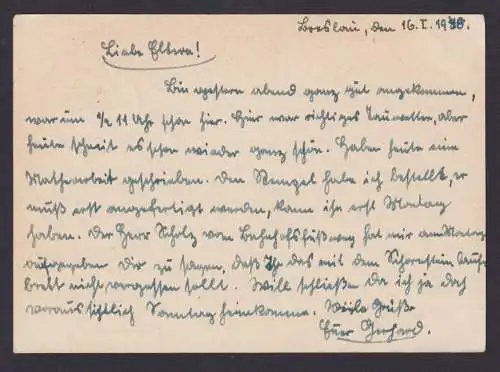 Breslau, den 16.I.1940.
Liebe Eltern!
Bin gestern abend ganz gut angekommen,
war um ½ 11 Uhr schon hier. Hier war richtiges Tauwetter, aber
heute schneit es schon wieder ganz schön. Haben heute eine
Mathearbeit geschrieben. Den Stempel habe ich bestellt, er
muß erst angefertigt werden, kann ihn erst Montag
haben. Der Herr Scholz vom Bahnhofsfußweg hat mir am Montag
aufgegeben Dir zu sagen, daß Ihr das mit dem Schornstein
brett nicht vergessen sollt. Will schließen da ich ja doch
voraussichtlich Sonntag heimkomme. Viele Grüße
Euer Gerhard.